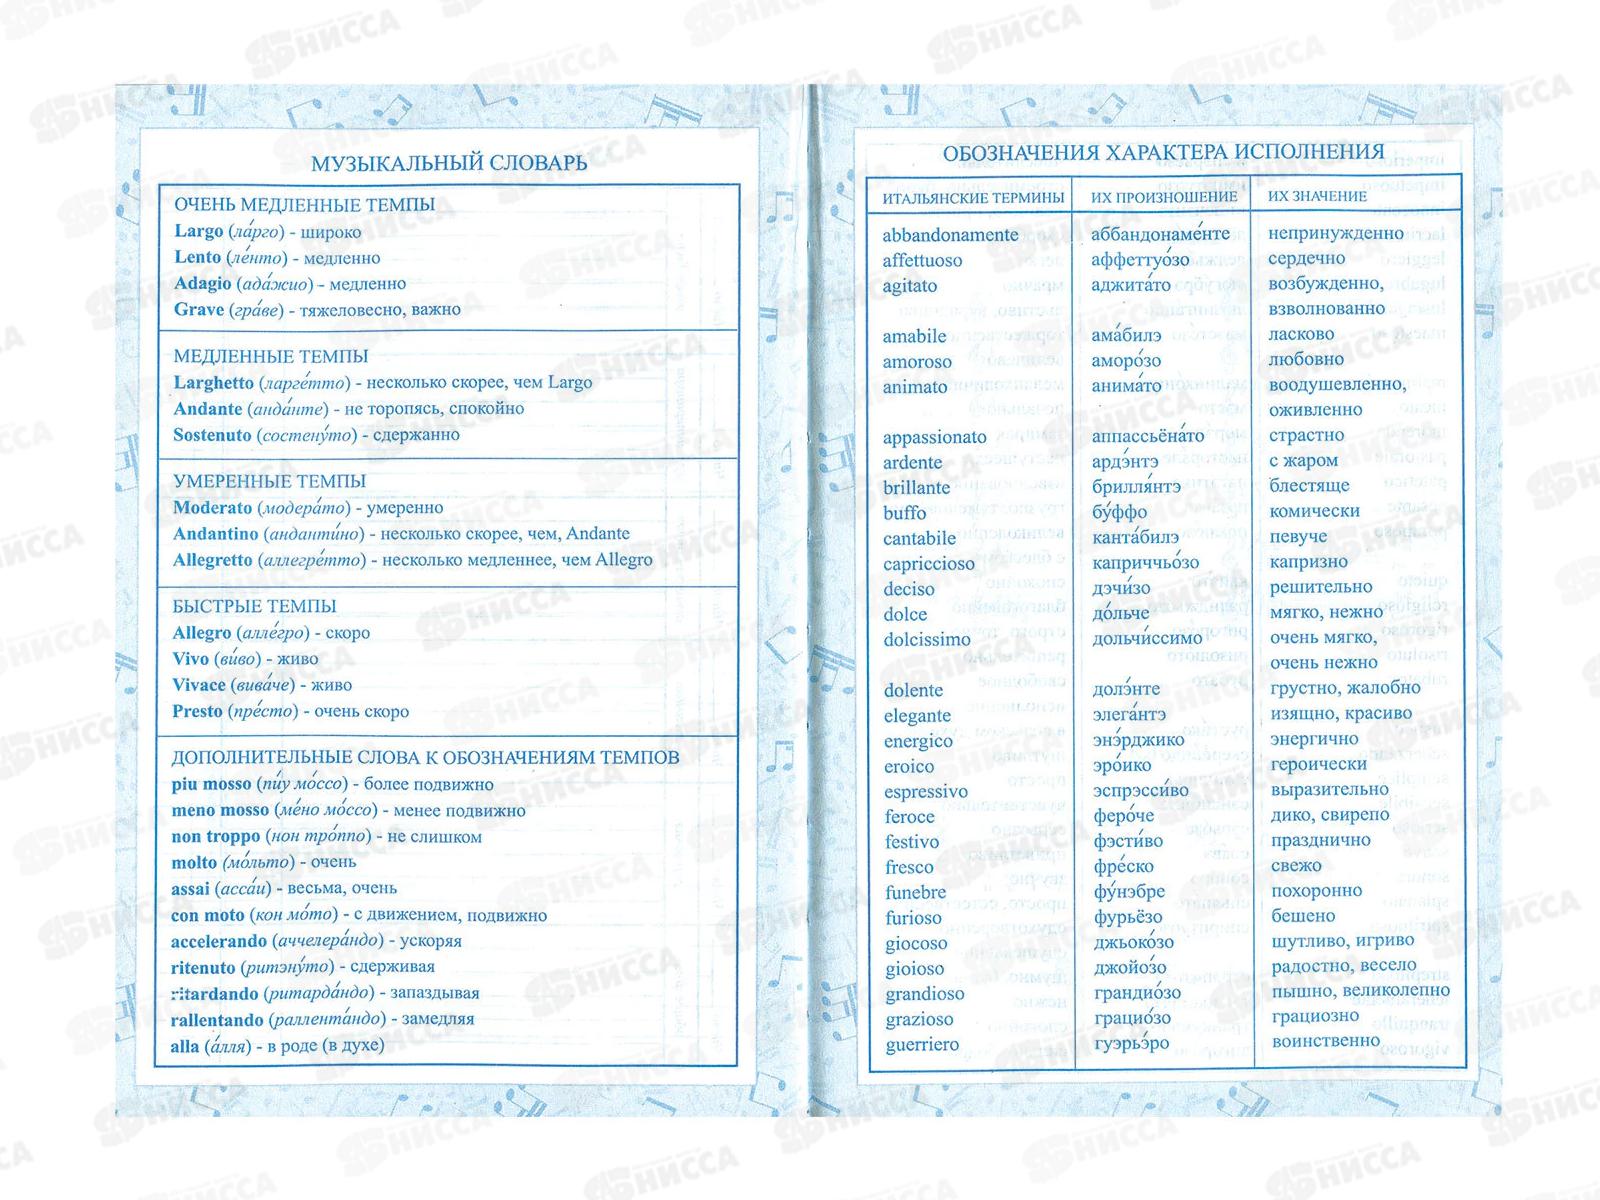 МУЗЫКАЛЬНЫЙ СЛОВАРЬ
ОЧЕНЬ МЕДЛЕННЫЕ ТЕМПЫ
Largo (ла́рго) - широко
Lento (ле́нто) - медленно
Adagio (ада́жио) - медленно
Grave (гра́ве) - тяжеловесно, важно
МЕДЛЕННЫЕ ТЕМПЫ
Larghetto (ларге́тто) - несколько скорее, чем Largo
Andante (анда́нте) - не торопясь, спокойно
Sostenuto (состену́то) - сдержанно
УМЕРЕННЫЕ ТЕМПЫ
Moderato (модера́то) - умеренно
Andantino (анданти́но) - несколько скорее, чем, Andante
Allegretto (аллегре́тто) - несколько медленнее, чем Allegro
БЫСТРЫЕ ТЕМПЫ
Allegro (алле́гро) - скоро
Vivo (ви́во) - живо
Vivace (вива́че) - живо
Presto (пре́сто) - очень скоро
ДОПОЛНИТЕЛЬНЫЕ СЛОВА К ОБОЗНАЧЕНИЯМ ТЕМПОВ
piu mosso (пи́у мо́ссо) - более подвижно
meno mosso (ме́но мо́ссо) - менее подвижно
non troppo (нон тро́ппо) - не слишком
molto (мо́льто) - очень
assai (асса́и) - весьма, очень
con moto (кон мо́то) - с движением, подвижно
accelerando (аччелера́ндо) - ускоряя
ritenuto (ритэну́то) - сдерживая
ritardando (ритарда́ндо) - запаздывая
rallentando (раллента́ндо) - замедляя
alla (а́лля) - в роде (в духе)
ОБОЗНАЧЕНИЯ ХАРАКТЕРА ИСПОЛНЕНИЯ
ИТАЛЬЯНСКИЕ ТЕРМИНЫ ИХ ПРОИЗНОШЕНИЕ ИХ ЗНАЧЕНИЕ
abbandonamente аббандонаме́нте непринужденно
affettuoso аффеттуо́зо сердечно
agitato аджита́то возбужденно,
взволнованно
amabile ама́билэ ласково
amoroso аморо́зо любовно
animato анима́то воодушевленно,
оживленно
appassionato аппассьёна́то страстно
ardente ардэ́нтэ с жаром
brillante брилля́нтэ блестяще
buffo бу́ффо комически
cantabile канта́билэ певуче
capriccioso каприччьо́зо капризно
deciso дэчи́зо решительно
dolce до́льче мягко, нежно
dolcissimo дольчи́ссимо очень мягко,
очень нежно
dolente долэ́нте грустно, жалобно
elegante элега́нтэ изящно, красиво
energico энэ́рджико энергично
eroico эро́ико героически
espressivo эспрэсси́во выразительно
feroce феро́че дико, свирепо
festivo фэсти́во празднично
fresco фре́ско свежо
funebre фу́нэбре похоронно
furioso фурьёзо бешено
giocoso джьоко́зо шутливо, игриво
gioioso джойо́зо радостно, весело
grandioso грандио́зо пышно, великолепно
grazioso грацио́зо грациозно
guerriero гуэрьэ́ро воинственно